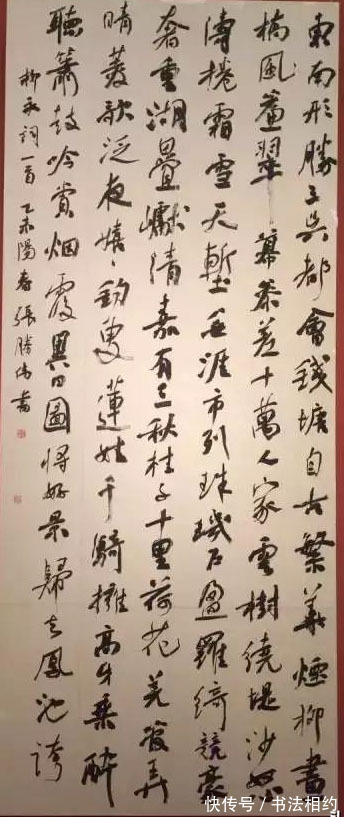 東南形勝三吴都會錢塘自古繁華煙柳畫
橋風簾翠幕参差十萬人家雲樹繞堤沙怒
濤捲霜雪天塹無涯市列珠璣户盈羅綺競豪
奢重湖疊巘清嘉有三秋桂子十里荷花羌管弄
晴菱歌泛夜嬉嬉釣叟蓮娃千騎擁高牙乘醉
聽簫鼓吟賞烟霞異日圖將好景歸去鳳池誇
柳永詞一首 乙未陽春 張勝偉書
快传号／书法相约